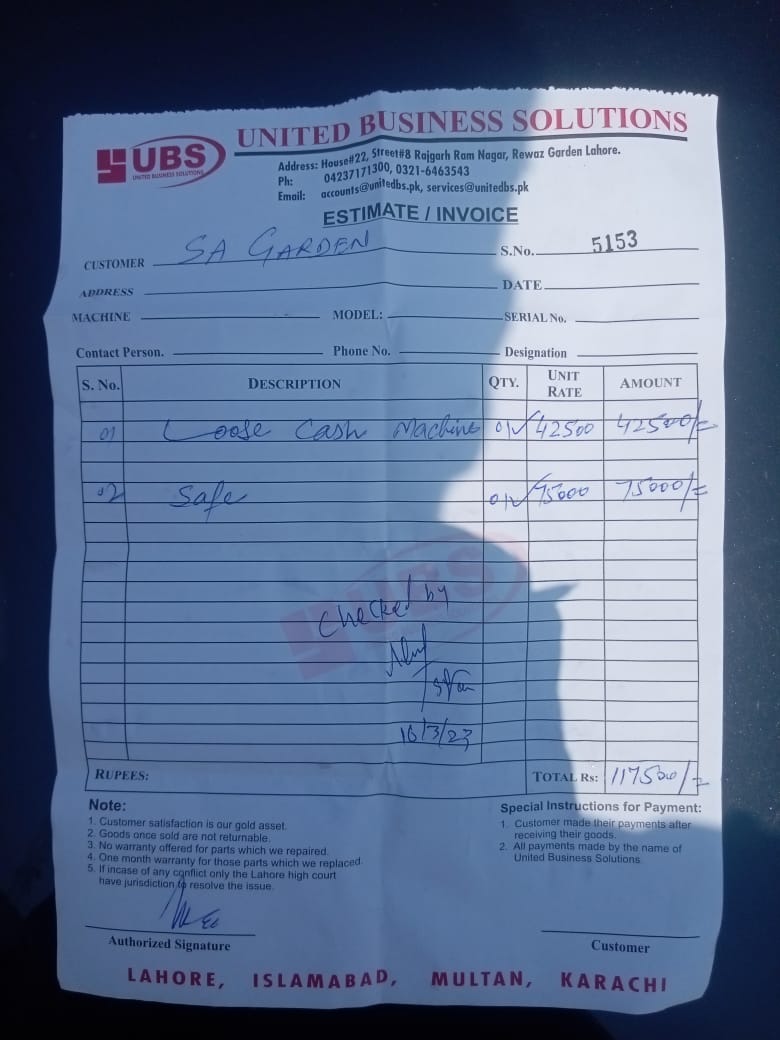 UBS
UNITED BUSINESS SOLUTIONS
UNITED BUSINESS SOLUTIONS
Address: House#22, Street#8 Rajgarh Ram Nagar, Rewaz Garden Lahore.
Ph: 04237171300, 0321-6463543
Email: accounts@unitedbs.pk, services@unitedbs.pk
ESTIMATE / INVOICE
CUSTOMER SA GARDEN S.No. 5153
ADDRESS DATE
MACHINE MODEL: SERIAL No.
Contact Person. Phone No. Designation
S. No. DESCRIPTION QTY. UNIT RATE AMOUNT
01 Loose Cash Machine 01 42500 42500/=
02 Safe 01 75000 75000/=
UBS
Checked by
16/3/23
RUPEES: TOTAL Rs: 117500/=
Note:
1. Customer satisfaction is our gold asset.
2. Goods once sold are not returnable.
3. No warranty offered for parts which we repaired.
4. One month warranty for those parts which we replaced.
5. If incase of any conflict only the Lahore high court
have jurisdiction to resolve the issue.
Special Instructions for Payment:
1. Customer made their payments after
receiving their goods.
2. All payments made by the name of
United Business Solutions.
Authorized Signature
Customer
LAHORE, ISLAMABAD, MULTAN, KARACHI